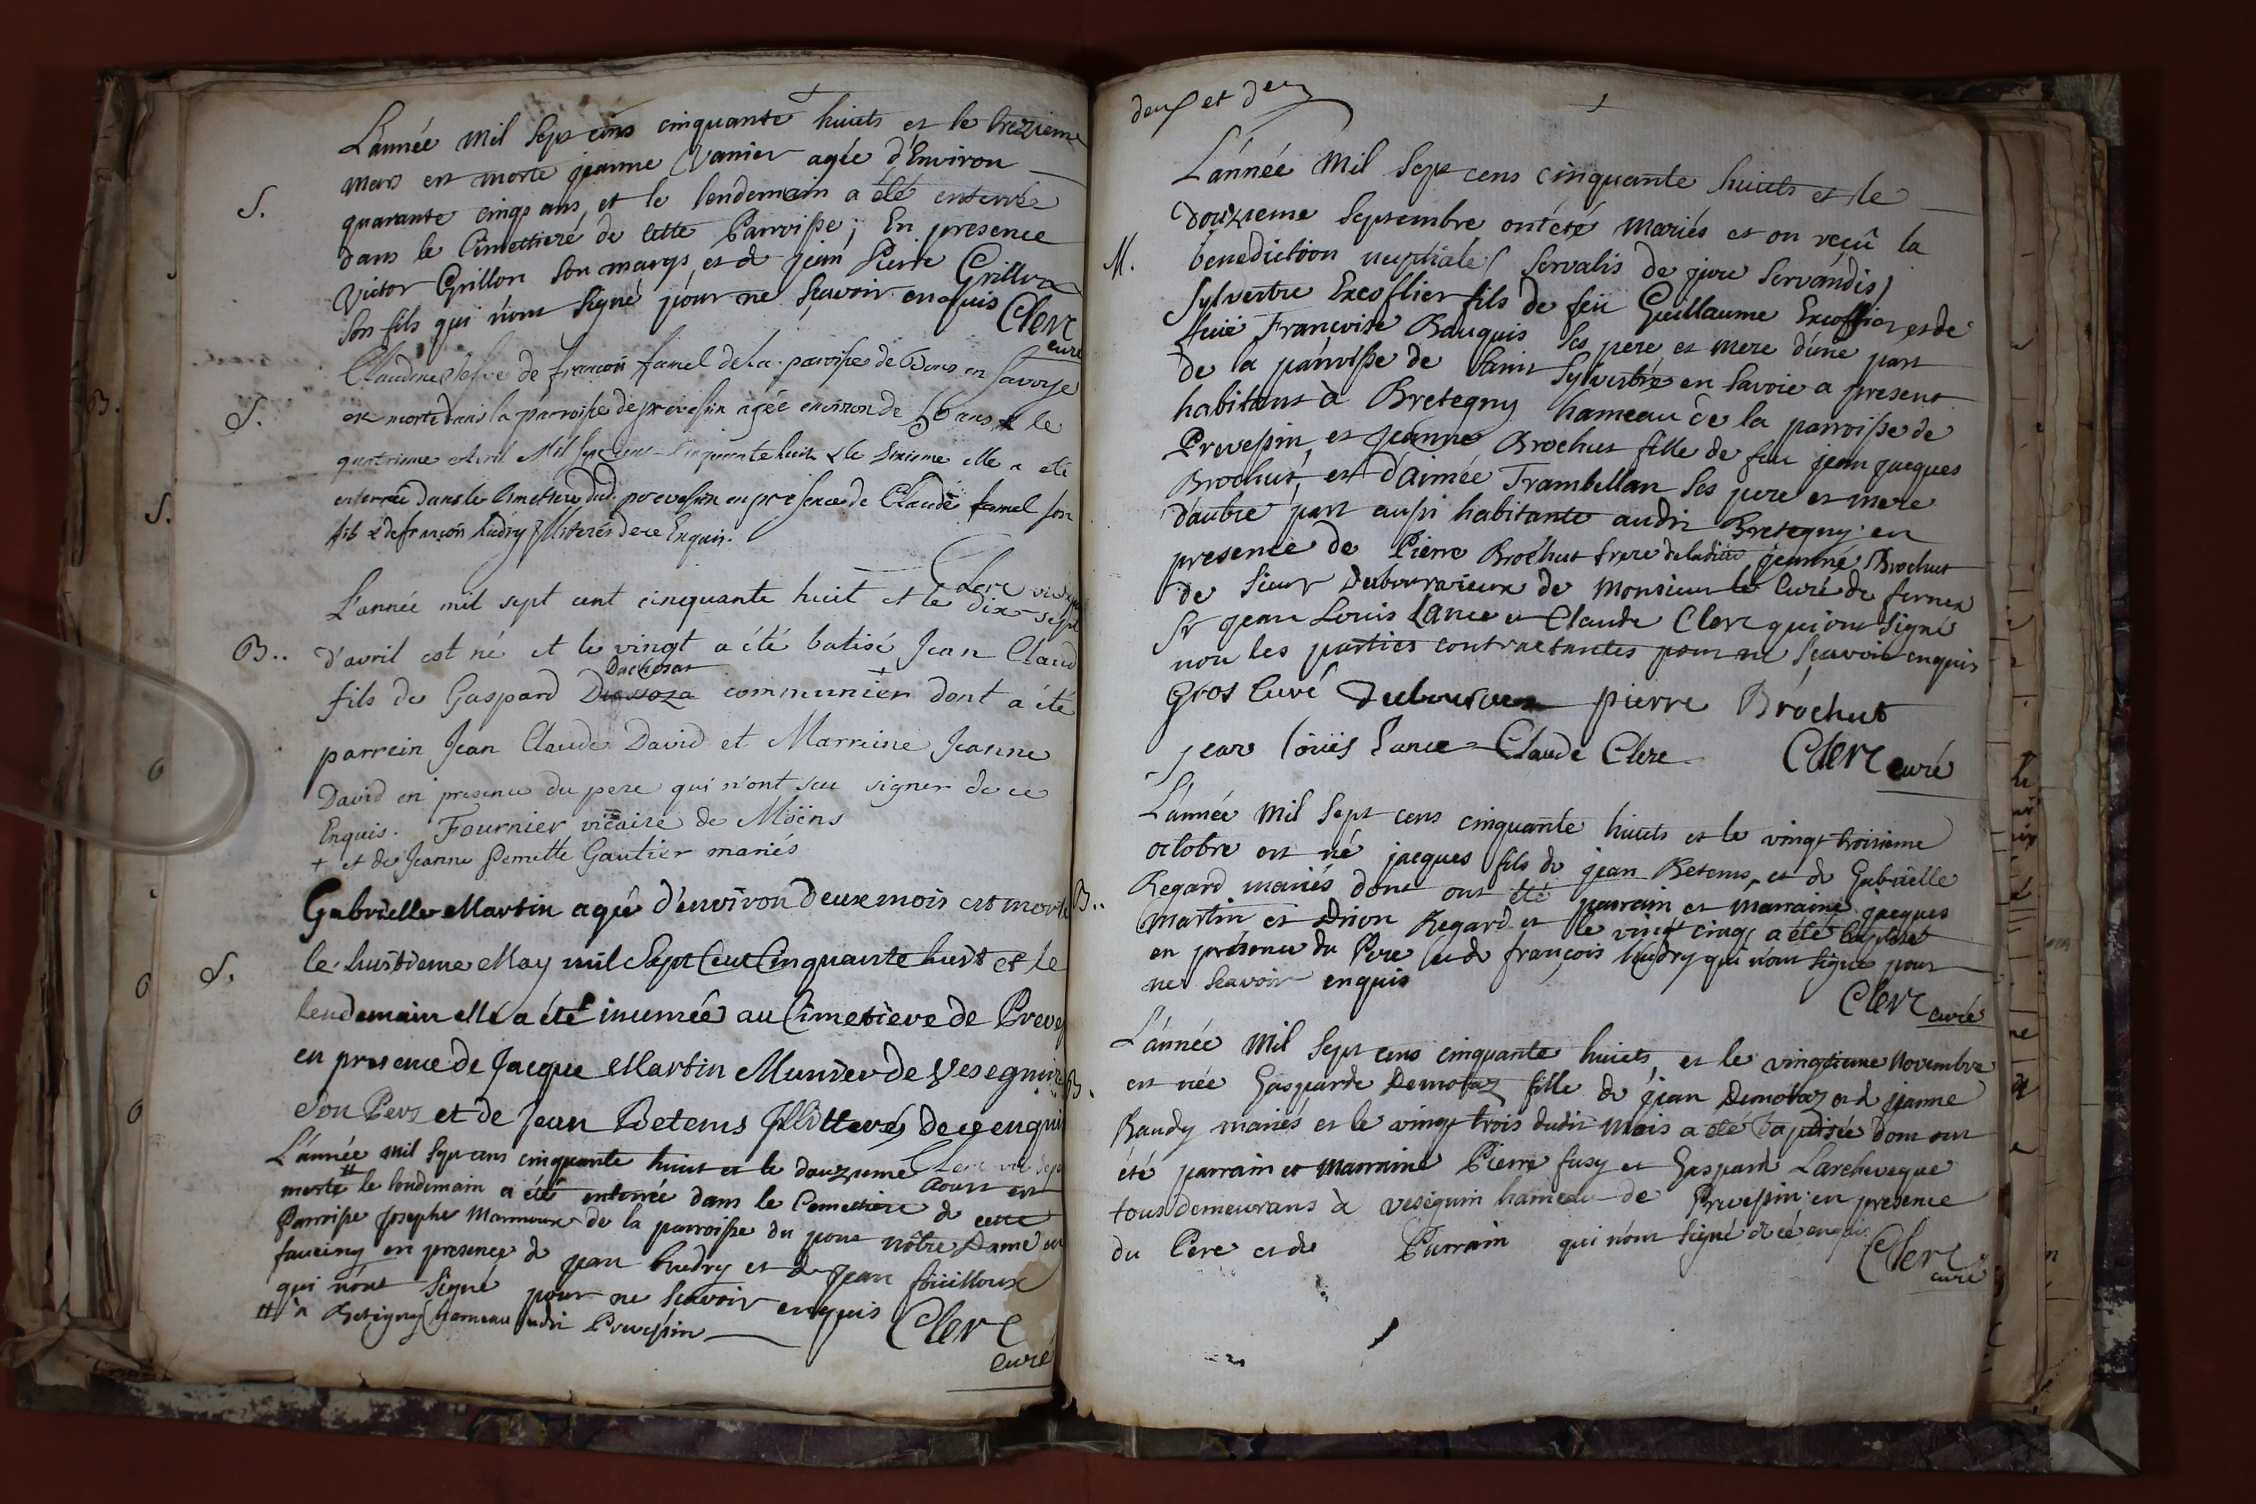 L'année mil sept cens cinquante huict et le trezieme
mars est morte jeanne Vanier agée d'Environ
S.
quarante cinqs ans et le lendemain a été enterrée
dans le Cimettiere de cette Parroisse; En presence
Victor Grillon son marys et de jean Pierre Grillon
son fils qui n'ont signé pour ne sçavoir enquis Clerc
curé
Claudine de françois famel de la parroisse de Bons en Savoye
S.
est morte dans la parroisse de prevessin agée environ de ans & le
quatrieme Avril Mil Sept Cens Cinquante huit & le Sixieme elle a été
enterrée dans le Cimetiere dud. prevessin en presence de Claude famel son
fils & de françois hudry Illiterés de ce Enquis.
Clerc
L'année mil sept cent cinquante huit et le dix-sept
B..
d'avril est né et le vingt a été batisé Jean Claud
Dachosat
fils de Gaspard communier + dont a été
parrein Jean Claude David et Marreine Jeanne
David en presence du pere qui n'ont seu signer de ce
Enquis. Fournier vicaire de Möens
+ et de Jeanne Pernette Gautier mariés
Gabrielle Martin agée d'environ Deux mois est morte
S.
le huitieme May mil Sept Cent Cinquante huit et le
lendemain elle a été inumée au Cimetiere de Preve
en presence de Jacque Martin Munier de Vesegnin
Son Pere et de Jean Betems Illitterés de ce enquis
L'année mil sept cens cinquante huict et le douzieme Aoust est
morte # le lendemain a été enterrée dans le Cemettiere de cette
Parroisse Josephe Marmoux de la parroisse du pont nôtre Dame en
faucigny en presence de jean hudry et de jean foüilloux
qui n'ont signé pour ne sçavoir enquis Clerc
# à Bretigny hameau dudit Prevessin
curé
deux et deux
L'année mil sept cens cinquante huicts et le
douzieme Septembre ont étés mariés et on reçû la
M.
benediction nuptiale (servatis de jure servandis)
Sylvestre Excoflier fils de feu Guillaume Excoffier et de
feüe Francoise Bauquis ses pere et mere d'une part
de la parroisse de Saint Sylvestre en Savoie a present
habitant à Bretegny hameau de la parroisse de
Prevessin, et Jeanne Brochut fille de feu jean jacques
Brochut, et d'aimée Trambellan ses pere et mere
d'autre part aussi habitante audit Bretegny en
presence de Pierre Brochut frere de ladite jeanne Brochut
de Sieur de Monsieur le Curé de fernex
Sr jean Louis Lance et Claude Clerc qui ont signé
non les parties contractantes pour ne sçavoir enquis
Gros Curé pierre Brochut
jean loüis lance Claude Clerc Clerc curé
L'année mil sept cens cinquante huicts et le vingt troisieme
octobre est né jacques fils de jean Betems, et de Gabrielle
B..
Regard mariés dont ont été parrain et marraine jacques
Martin et Regard et le vingt cinq a été baptisé
en présence du Pere et de françois hudry qui n'ont signé pour
ne sçavoir enquis
Clerc curé
L'année mil sept cens cinquante huicts, et le vingtieme Novembre
B.
est née Gasparde Demotaz fille de jean Demotaz et de jeanne
Baudy mariés et le vingt trois dudit mois a été baptisée dont ont
été parrain et marraine Pierre fusy et Gasparde Larcheveque
tous demeurans à vesegnin hameau de Prevessin en presence
du Pere et du Parrain qui n'ont signé de ce enquis
Clerc
curé